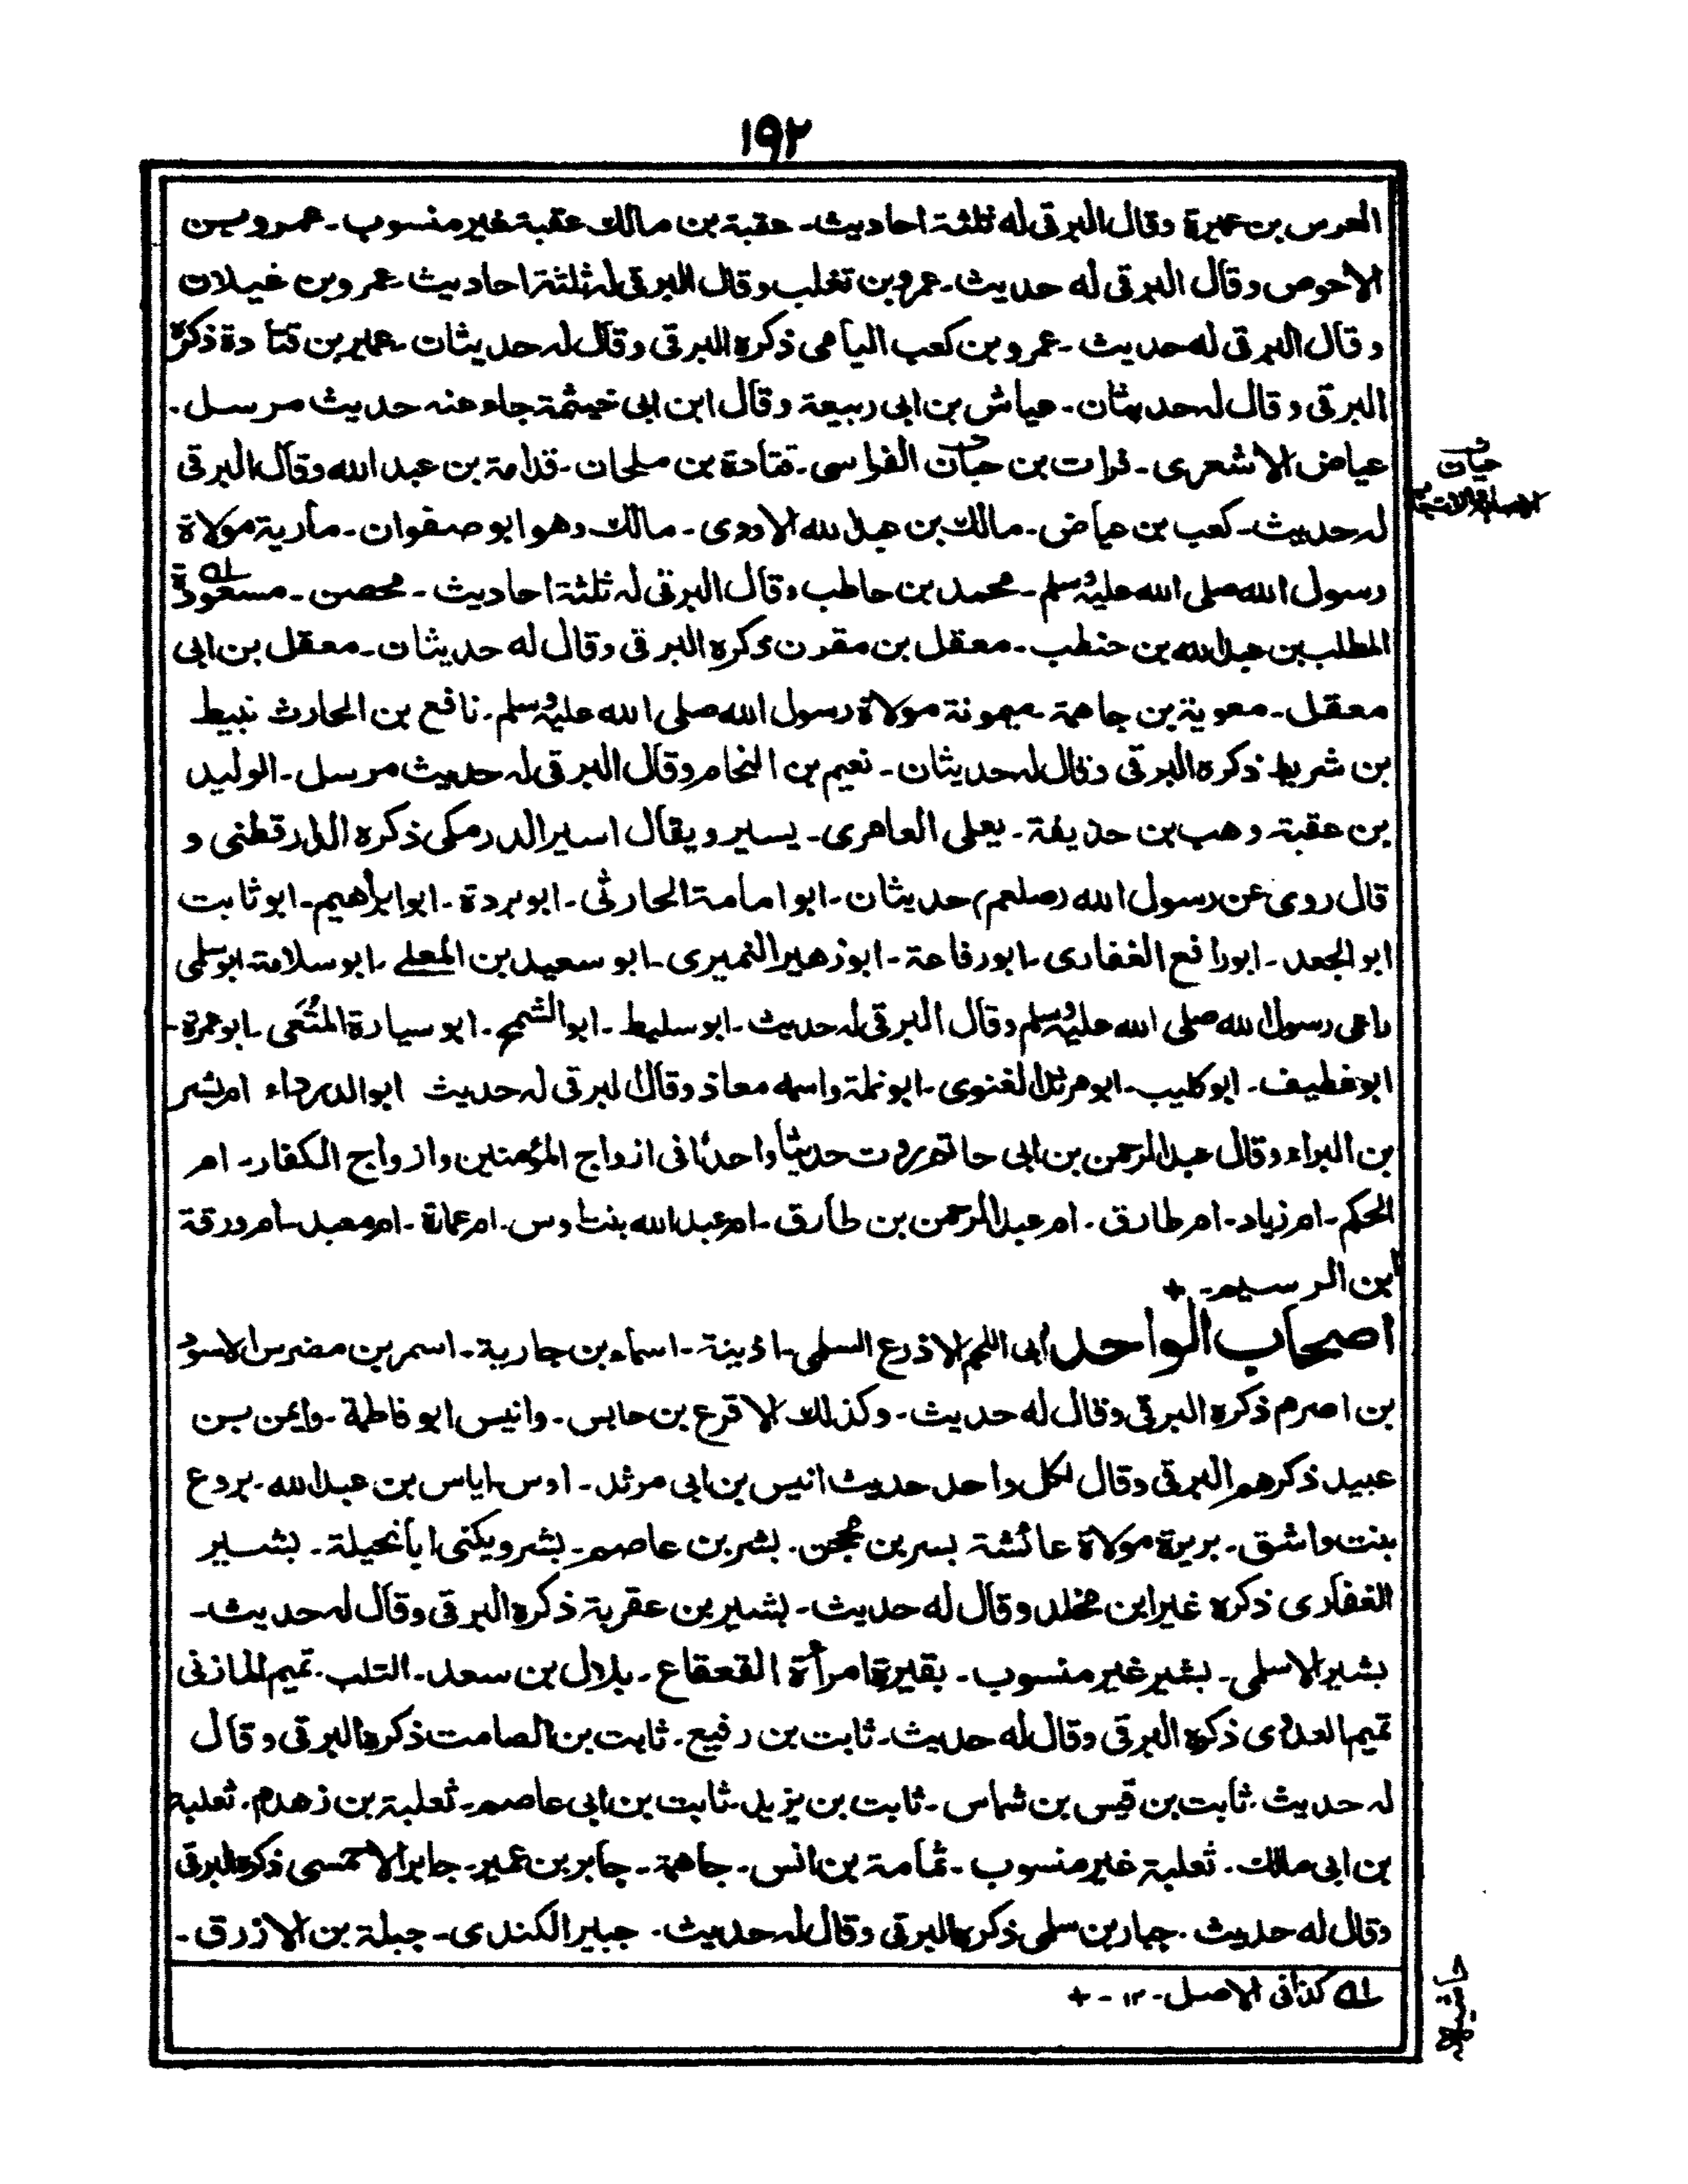 ١٩٢
العرس بن عميرة وقال البرقى له ثلثة احاديث۔ عقبة بن مالك عقبة غير منسوب۔ عمرو بن
الاحوص وقال البرقى له حديث۔ عمرو بن تغلب وقال البرقى له ثلثة احاديث۔ عمرو بن غيلان
وقال البرقى له حديث۔ عمرو بن كعب اليامى ذكره البرقى وقال له حديثان۔ عمير بن قتادة ذكره
البرقى وقال له حديثان۔ عياش بن ابى ربيعة وقال ابن ابى خيثمة جاء عنه حديث مرسل۔
عياض الاشعرى۔ فرات بن حيان الفراسى۔ قتادة بن ملحان۔ قدامة بن عبد الله وقال البرقى
له حديث۔ كعب بن عياض۔ مالك بن عبد الله الاودى۔ مالك وهو ابو صفوان۔ مارية مولاة
رسول الله صلى الله عليه وسلم۔ محمد بن حاطب وقال البرقى له ثلثة احاديث۔ محصن۔ مسعودة
المطلب بن عبد الله بن حنطب۔ معقل بن مقرن ذكره البرقى وقال له حديثان۔ معقل بن ابى
معقل۔ معوية بن جاهمة۔ ميمونة مولاة رسول الله صلى الله عليه وسلم۔ نافع بن الحارث نبيط
بن شريط ذكره البرقى وقال له حديثان۔ نعيم بن النحام وقال البرقى له حديث مرسل۔ الوليد
بن عقبة وهب بن حذيفة۔ يعلى العامرى۔ يسير ويقال اسير الدرمكى ذكره الدارقطنى و
قال روى عن رسول الله (صلعم) حديثان۔ ابو امامة الحارثى۔ ابو بردة۔ ابو ابراهيم۔ ابو ثابت
ابو الجعد۔ ابو رافع الغفارى۔ ابو رفاعة۔ ابو زهير النميرى۔ ابو سعيد بن المعلے۔ ابو سلامة۔ ابو سلمى
راعى رسول الله صلى الله عليه وسلم وقال البرقى له حديث۔ ابو سليط۔ ابو الشمح۔ ابو سيارة المتعى۔ ابو عمرة۔
ابو غطيف۔ ابو كليب۔ ابو مرثد الغنوى۔ ابو نملة واسمه معاذ وقال البرقى له حديث ابو الدرداء ام بشر
بن البراء وقال عبد الرحمن بن ابى حاتم روت حديثا واحدا فى ازواج المؤمنين وازواج الكفار۔ ام
الحكم۔ ام زياد۔ ام طارق۔ ام عبد الرحمن بن طارق۔ ام عبد الله بنت اوس۔ ام عمارة۔ ام معبد۔ ام ورقة
ابن الرسيم۔ +
اصحاب الواحد ابى اللحم الاذرع السلمى۔ اذينة۔ اسماء بن جارية۔ اسمر بن مضرس الاسود
بن اصرم ذكره البرقى وقال له حديث۔ وكذلك الاقرع بن حابس۔ وانيس ابو فاطمة۔ وايمن بن
عبيد ذكرهم البرقى وقال لكل واحد حديث انيس بن ابى مرثد۔ اوس۔ اياس بن عبد الله۔ بروع
بنت واشق۔ بريرة مولاة عائشة بسر بن محجن۔ بشر بن عاصم۔ بشر ويكنى ابا نحيلة۔ بشير
الغفارى ذكره غير ابن مخلد وقال له حديث۔ بشير بن عقربة ذكره البرقى وقال له حديث۔
بشير الاسلمى۔ بشير غير منسوب۔ بقيرة امرأة القعقاع۔ بلال بن سعد۔ التلب۔ تميم المازنى
تميم العدوى ذكره البرقى وقال له حديث۔ ثابت بن رفيع۔ ثابت بن الصامت ذكره البرقى وقال
له حديث۔ ثابت بن قيس بن شماس۔ ثابت بن يزيد۔ ثابت بن ابى عاصم۔ ثعلبة بن زهدم۔ ثعلبة
بن ابى مالك۔ ثعلبة غير منسوب۔ ثمامة بن انس۔ جاهمة۔ جابر بن عمير۔ جابر الاحمسى ذكره البرقى
وقال له حديث۔ جبار بن سلمى ذكره البرقى وقال له حديث۔ جبير الكندى۔ جبلة بن الازرق۔
حيان
له كذا فى الاصل۔ ١٢۔ +
حاشية